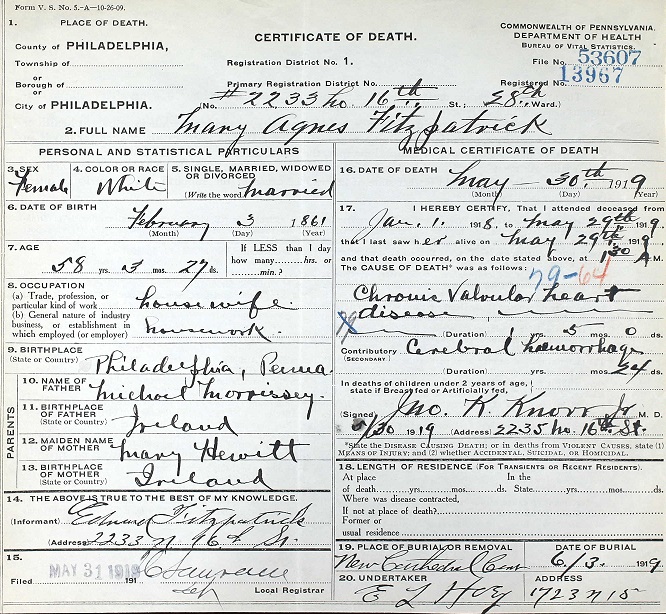 Form V. S. No. 5.-A-10-26-09.
1. PLACE OF DEATH.
County of PHILADELPHIA,
Township of
or
Borough of
or
City of PHILADELPHIA.
CERTIFICATE OF DEATH.
Registration District No. 1.
Primary Registration District No.
(No. # 2233 no. 16th St.; 28th Ward.)
COMMONWEALTH OF PENNSYLVANIA.
DEPARTMENT OF HEALTH
BUREAU OF VITAL STATISTICS.
File No. 53607
Registered No. 13967
2. FULL NAME Mary Agnes Fitzpatrick
PERSONAL AND STATISTICAL PARTICULARS
3. SEX
Female
4. COLOR OR RACE
White
5. SINGLE, MARRIED, WIDOWED
OR DIVORCED
(Write the word) married
6. DATE OF BIRTH
February 3 1861
(Month) (Day) (Year)
7. AGE
58 yrs. 3 mos. 27 ds.
If LESS than 1 day
how many hrs. or
min.?
8. OCCUPATION
(a) Trade, profession, or
particular kind of work housewife
(b) General nature of industry
business, or establishment in
which employed (or employer) housework.
9. BIRTHPLACE
(State or Country) Philadelphia, Penna.
PARENTS
10. NAME OF
FATHER Michael Morrissey.
11. BIRTHPLACE
OF FATHER
(State or Country) Ireland
12. MAIDEN NAME
OF MOTHER Mary Hewitt
13. BIRTHPLACE
OF MOTHER
(State or Country) Ireland
14. THE ABOVE IS TRUE TO THE BEST OF MY KNOWLEDGE.
(Informant) Edward Fitzpatrick
(Address) 2233 N 16th St.
15.
Filed MAY 31 1919 191
Local Registrar
MEDICAL CERTIFICATE OF DEATH
16. DATE OF DEATH
May 30th, 1919
(Month) (Day) (Year)
17. I HEREBY CERTIFY, That I attended deceased from
Jan. 1. 1918. to May 29th 1919.
that I last saw her alive on May 29th 1919
and that death occurred, on the date stated above, at 1 30 A M.
The CAUSE OF DEATH* was as follows:
79-64
Chronic Valvular heart
disease
(Duration) 1 yrs. 5 mos. 0 ds.
Contributory Cerebral hæmorrhage
(SECONDARY)
(Duration) yrs. mos. 24 ds.
In deaths of children under 2 years of age,
state if Breastfed or Artificially fed,
(Signed) Jno. K. Knorr Jr M. D.
5/30 1919 (Address) 2235 no. 16th St.
*State the DISEASE CAUSING DEATH; or in deaths from VIOLENT CAUSES, state (1)
MEANS OF INJURY; and (2) whether ACCIDENTAL, SUICIDAL, or HOMICIDAL.
18. LENGTH OF RESIDENCE (FOR TRANSIENTS OR RECENT RESIDENTS).
At place In the
of death yrs. mos. ds. State yrs. mos. ds.
Where was disease contracted,
If not at place of death?
Former or
usual residence
19. PLACE OF BURIAL OR REMOVAL
New Cathedral Cem
DATE OF BURIAL
6/3. 1919
20. UNDERTAKER
E L Hoey
ADDRESS
1723 N 15